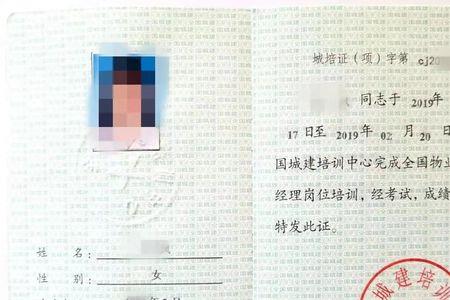 城培证(项)字第 cj20
同志于 2019年
17日至 2019年 02 月 20 日
国城建培训中心完成全国物业
经理岗位培训,经考试,成绩
特发此证。
姓 名:
性 别: 女
城建培训